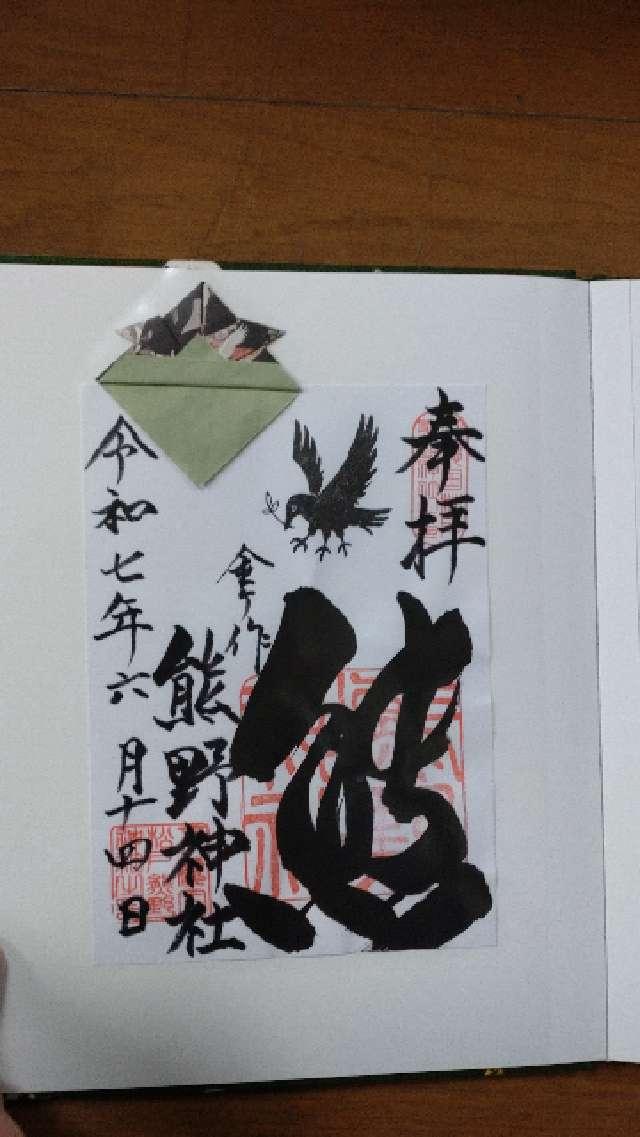 奉拝
熊
舎作
熊野神社
令和七年六月十四日